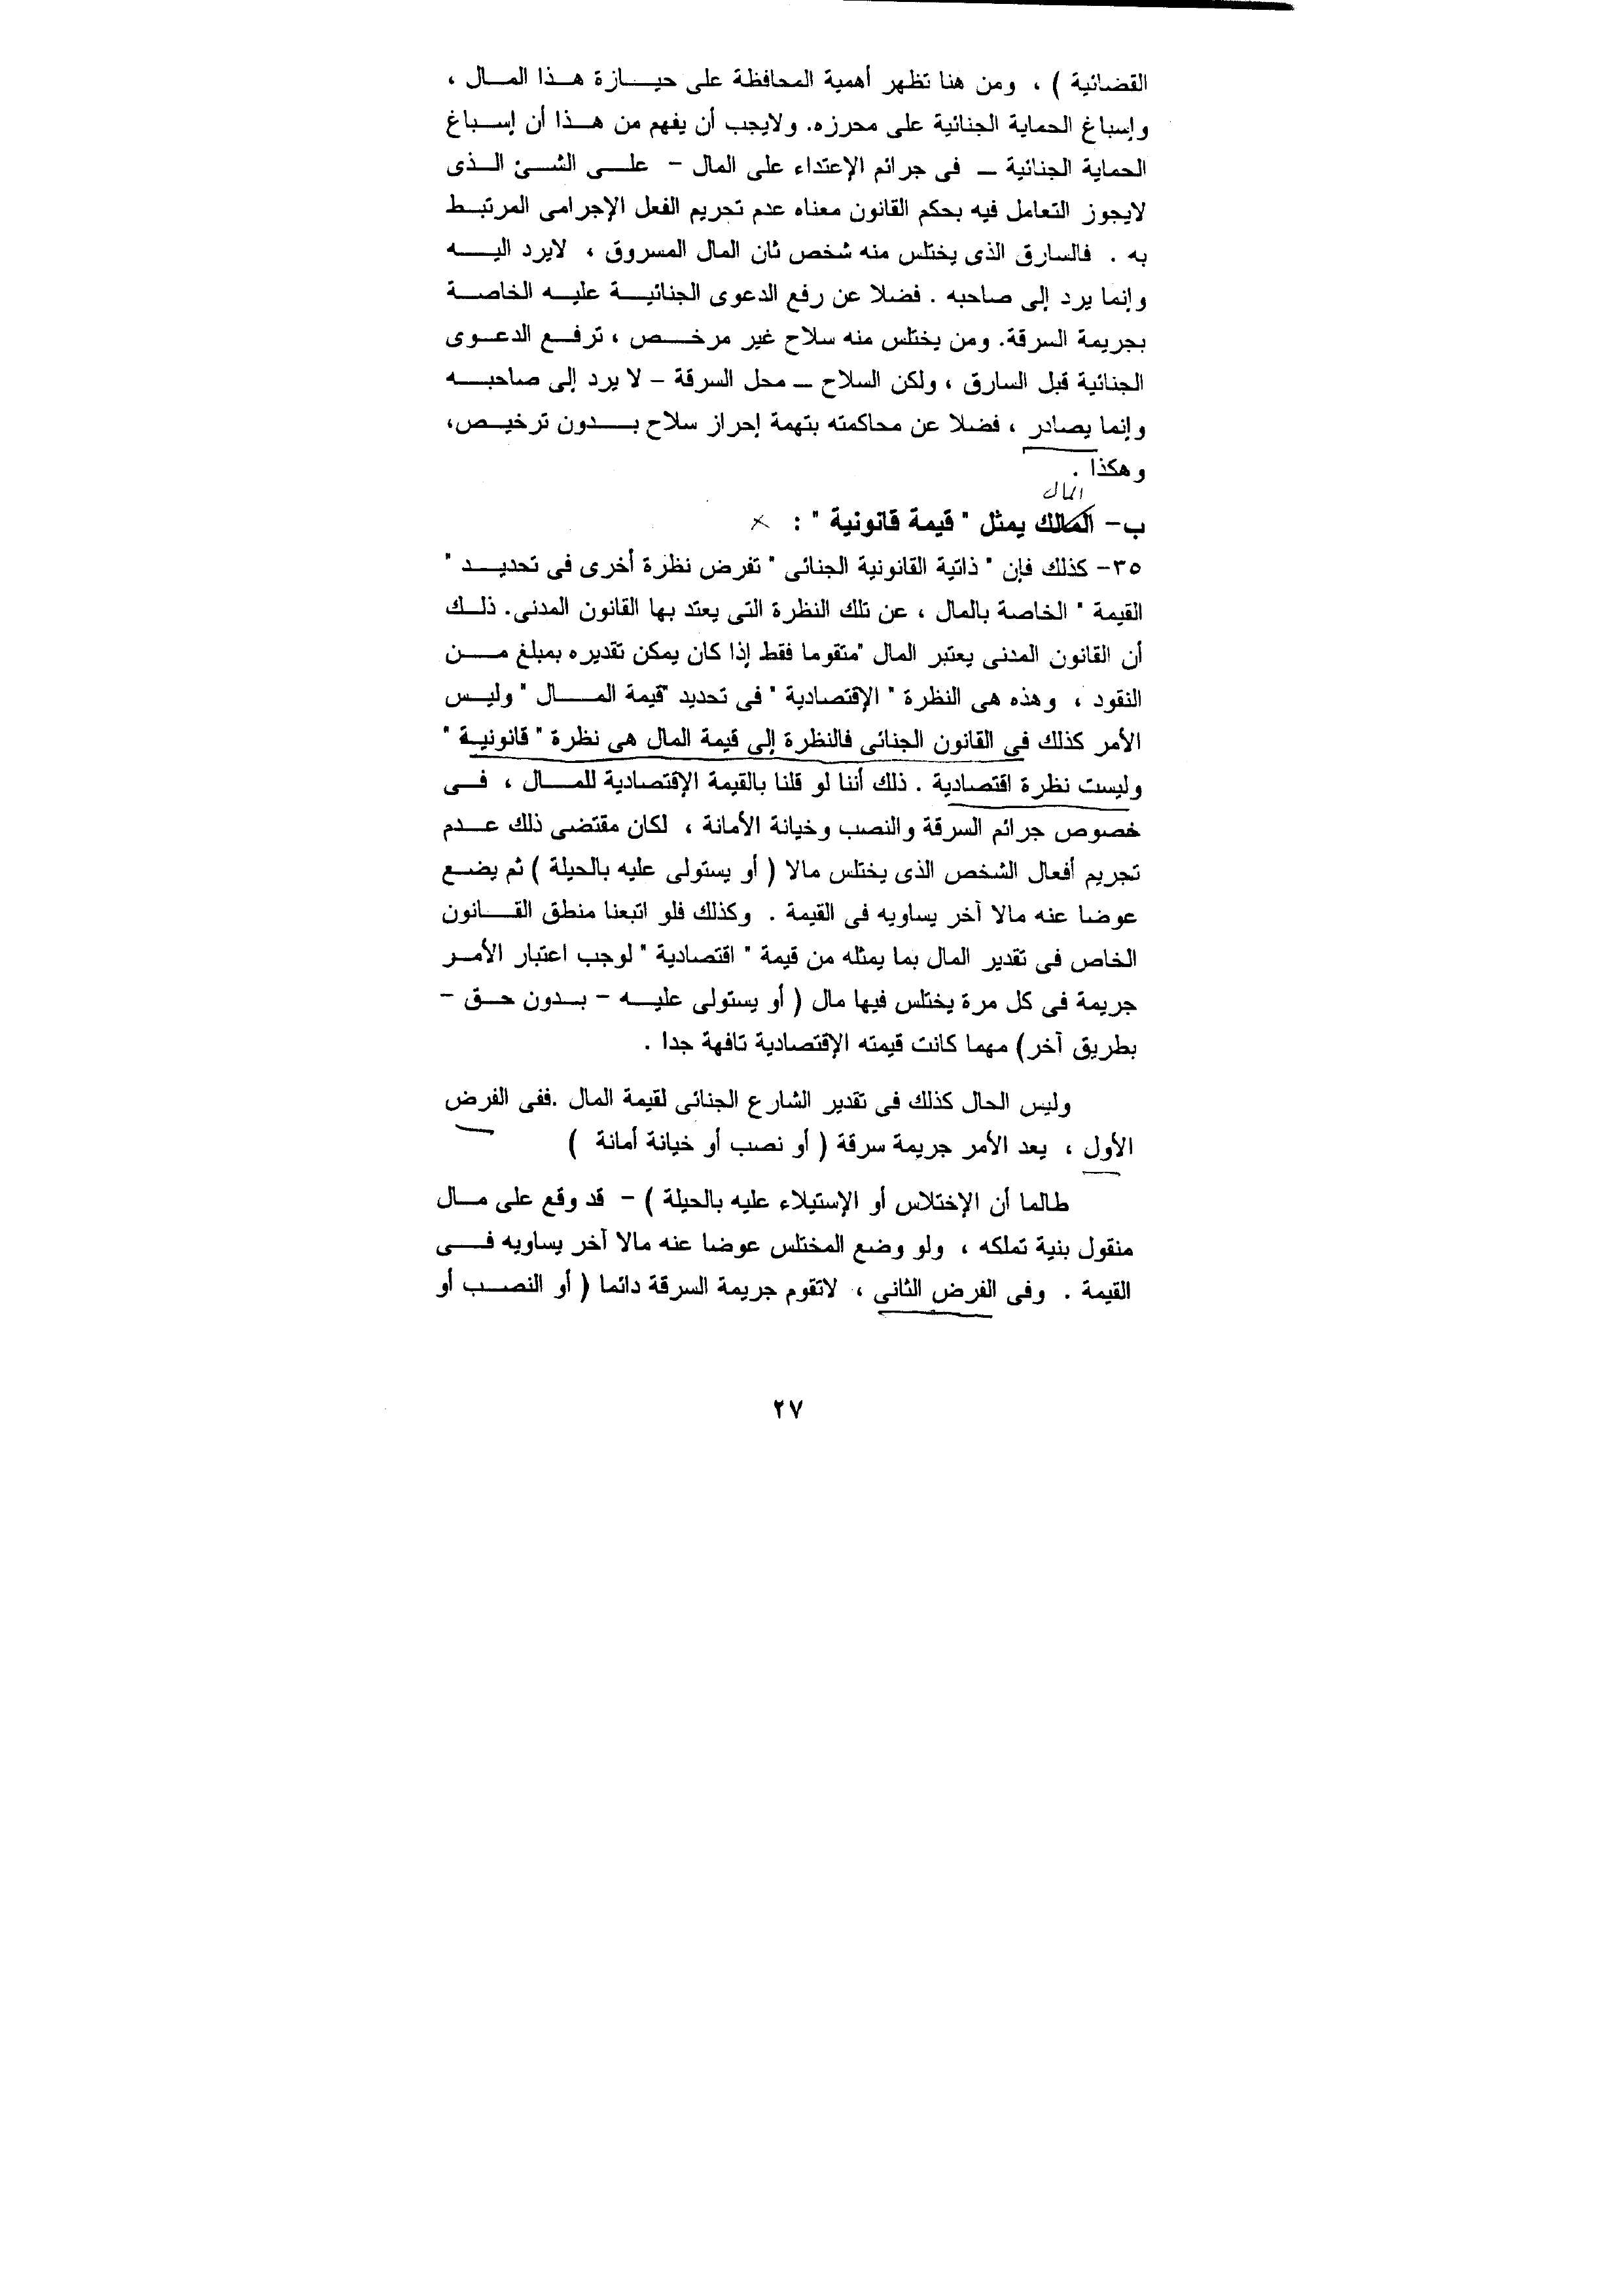 القضائية ) ، ومن هنا تظهر أهمية المحافظة على حيازة هذا المال ،
وإسباغ الحماية الجنائية على محرزه. ولايجب أن يفهم من هذا أن إسباغ
الحماية الجنائية – فى جرائم الإعتداء على المال – على الشئ الذى
لايجوز التعامل فيه بحكم القانون معناه عدم تحريم الفعل الإجرامى المرتبط
به . فالسارق الذى يختلس منه شخص ثان المال المسروق ، لايرد اليه
وإنما يرد إلى صاحبه . فضلا عن رفع الدعوى الجنائية عليه الخاصة
بجريمة السرقة. ومن يختلس منه سلاح غير مرخص ، ترفع الدعوى
الجنائية قبل السارق ، ولكن السلاح – محل السرقة – لا يرد إلى صاحبه
وإنما يصادر ، فضلا عن محاكمته بتهمة إحراز سلاح بدون ترخيص،
وهكذا .
المال
ب– المالك يمثل " قيمة قانونية " :
٣٥– كذلك فإن " ذاتية القانونية الجنائى " تفرض نظرة أخرى فى تحديد "
القيمة " الخاصة بالمال ، عن تلك النظرة التى يعتد بها القانون المدنى. ذلك
أن القانون المدنى يعتبر المال "متقوما فقط إذا كان يمكن تقديره بمبلغ من
النقود ، وهذه هى النظرة " الإقتصادية " فى تحديد "قيمة المال " وليس
الأمر كذلك فى القانون الجنائى فالنظرة إلى قيمة المال هى نظرة " قانونية "
وليست نظرة اقتصادية . ذلك أننا لو قلنا بالقيمة الإقتصادية للمال ، فى
خصوص جرائم السرقة والنصب وخيانة الأمانة ، لكان مقتضى ذلك عدم
تجريم أفعال الشخص الذى يختلس مالا ( أو يستولى عليه بالحيلة ) ثم يضع
عوضا عنه مالا آخر يساويه فى القيمة . وكذلك فلو اتبعنا منطق القانون
الخاص فى تقدير المال بما يمثله من قيمة " اقتصادية " لوجب اعتبار الأمر
جريمة فى كل مرة يختلس فيها مال ( أو يستولى عليه – بدون حق –
بطريق آخر) مهما كانت قيمته الإقتصادية تافهة جدا .
وليس الحال كذلك فى تقدير الشارع الجنائى لقيمة المال .ففى الفرض
الأول ، يعد الأمر جريمة سرقة ( أو نصب أو خيانة أمانة )
طالما أن الإختلاس أو الإستيلاء عليه بالحيلة ) – قد وقع على مال
منقول بنية تملكه ، ولو وضع المختلس عوضا عنه مالا آخر يساويه فى
القيمة . وفى الفرض الثانى ، لاتقوم جريمة السرقة دائما ( أو النصب أو
٢٧